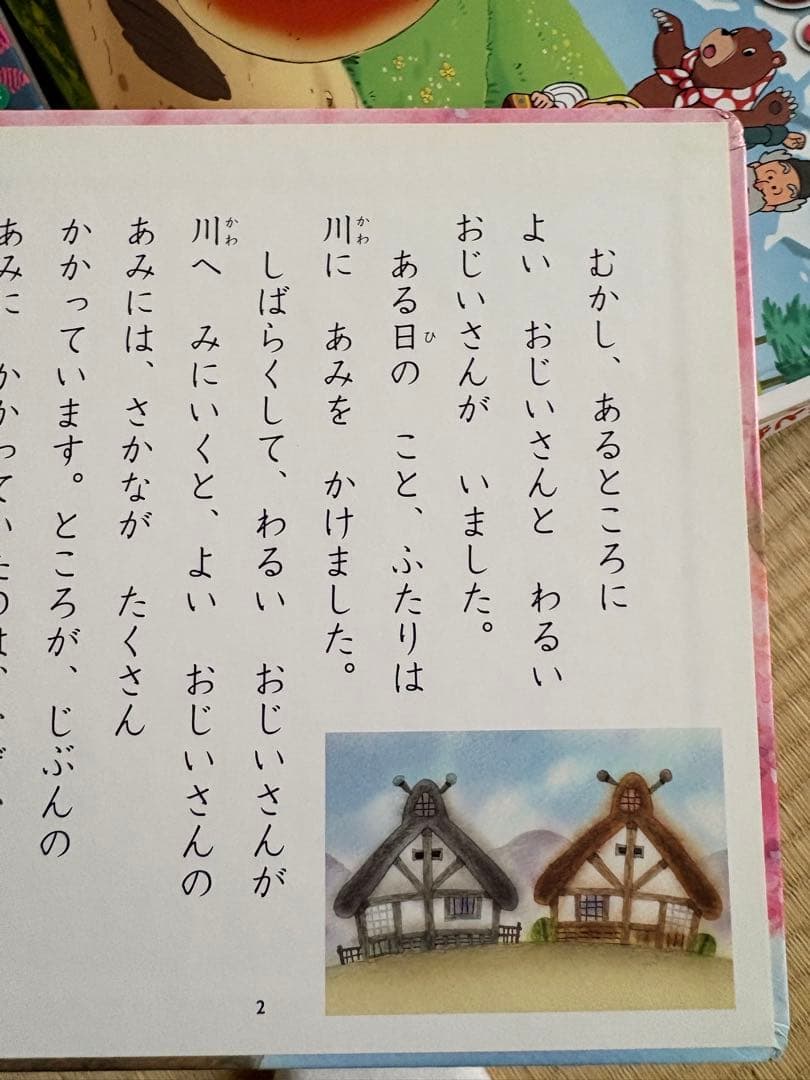 むかし、あるところに
よい おじいさんと わるい
おじいさんが いました。
ある日の こと、ふたりは
川に あみを かけました。
しばらくして、わるい おじいさんが
川へ みにいくと、よい おじいさんの
あみには、さかなが たくさん
かかっています。ところが、じぶんの
あみに かかっていたのは、
2